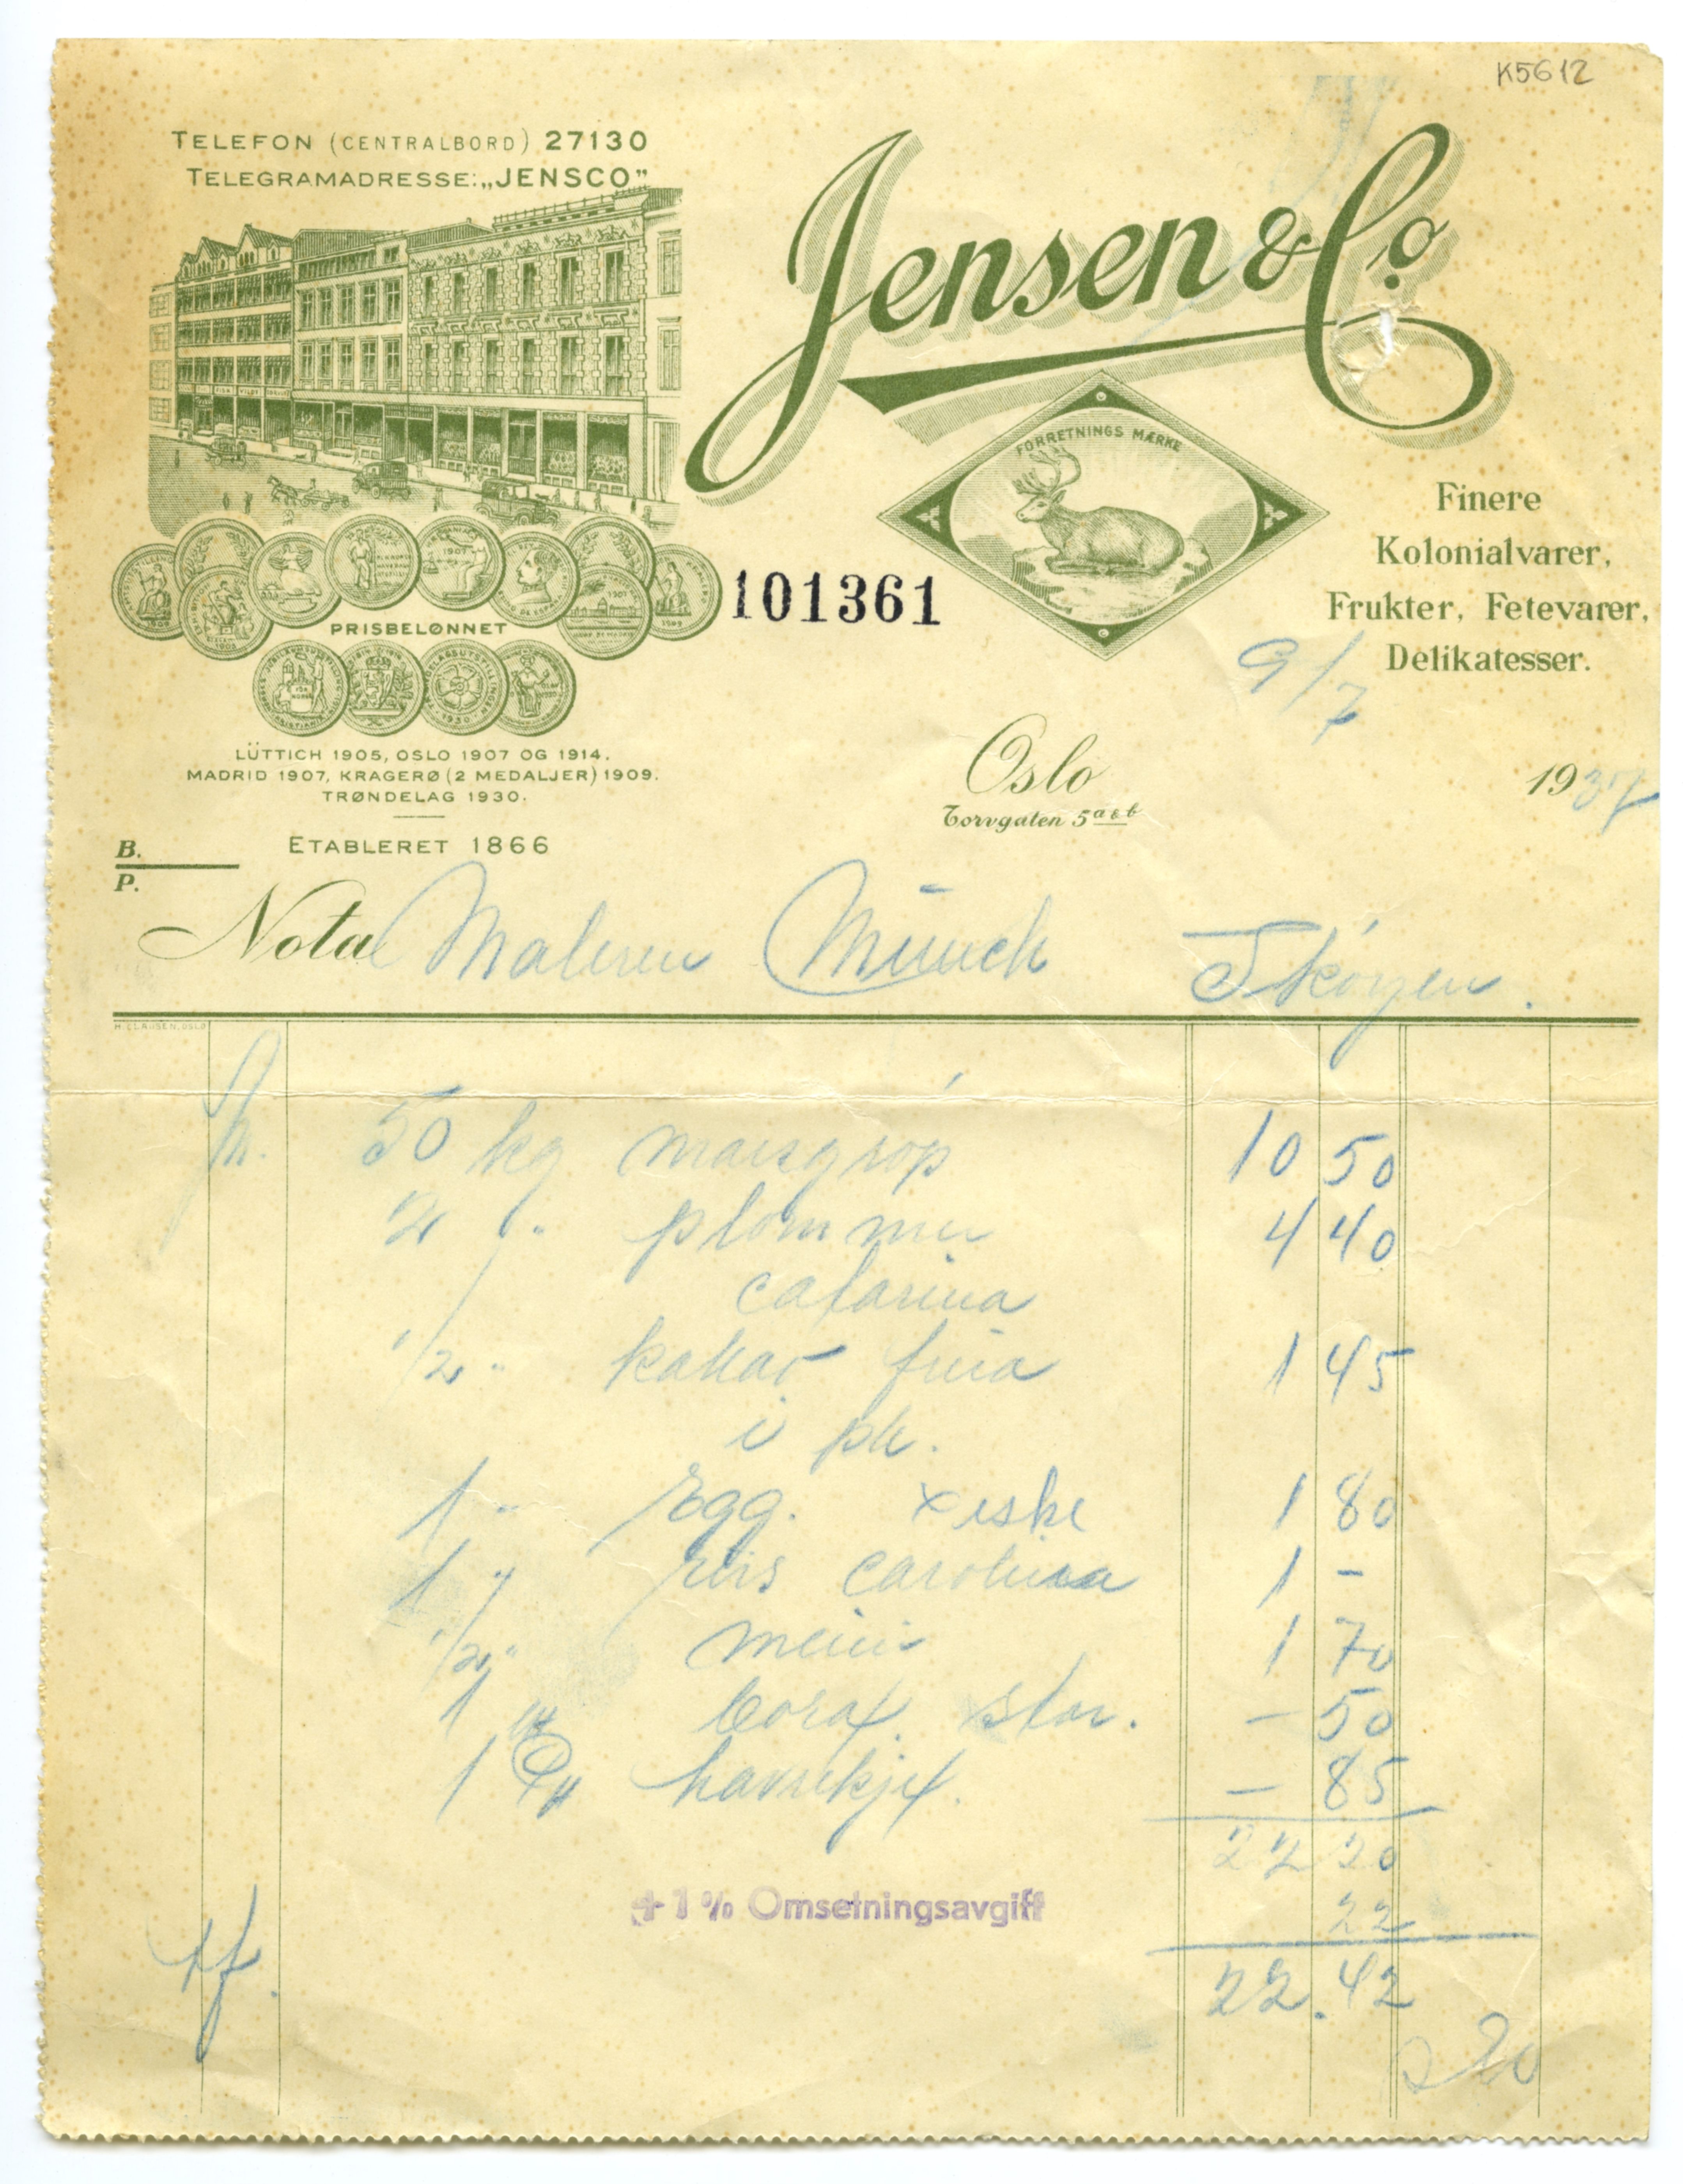 K5612
TELEFON (CENTRALBORD) 27130
TELEGRAMADRESSE: „JENSCO”
Jensen & Co.
FORRETNINGS MÆRKE
Finere
Kolonialvarer,
Frukter, Fetevarer,
Delikatesser.
101361
PRISBELØNNET
LÜTTICH 1905, OSLO 1907 OG 1914.
MADRID 1907, KRAGERØ (2 MEDALJER) 1909.
TRØNDELAG 1930.
ETABLERET 1866
9/7
Oslo 1937
Torvgaten 5 a & b
B.
P.
Nota Maleren Münch Skóyen.
H. CLAUSEN, OSLO
50 kg maisgróp 10 50
2 " plommer 4 40
catarina
1/2 " kakao freia 1 45
i pk.
1 " Egg. x eske 1 80
1 " Ris carolina 1 -
1/2 " 1 70
1 borax stor. - 50
1 havrekjex. - 85
22 20
+ 1 % Omsetningsavgift 22
22.42